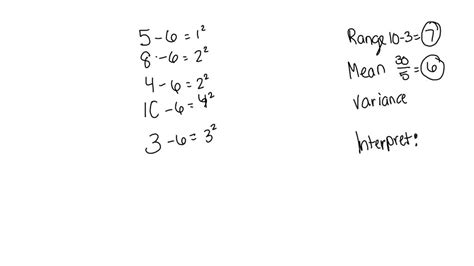 5 - 6 = 1²
8 - 6 = 2²
4 - 6 = 2²
10 - 6 = 4²
3 - 6 = 3²
Range 10-3 = 7
Mean 30/5 = 6
Variance
Interpret: